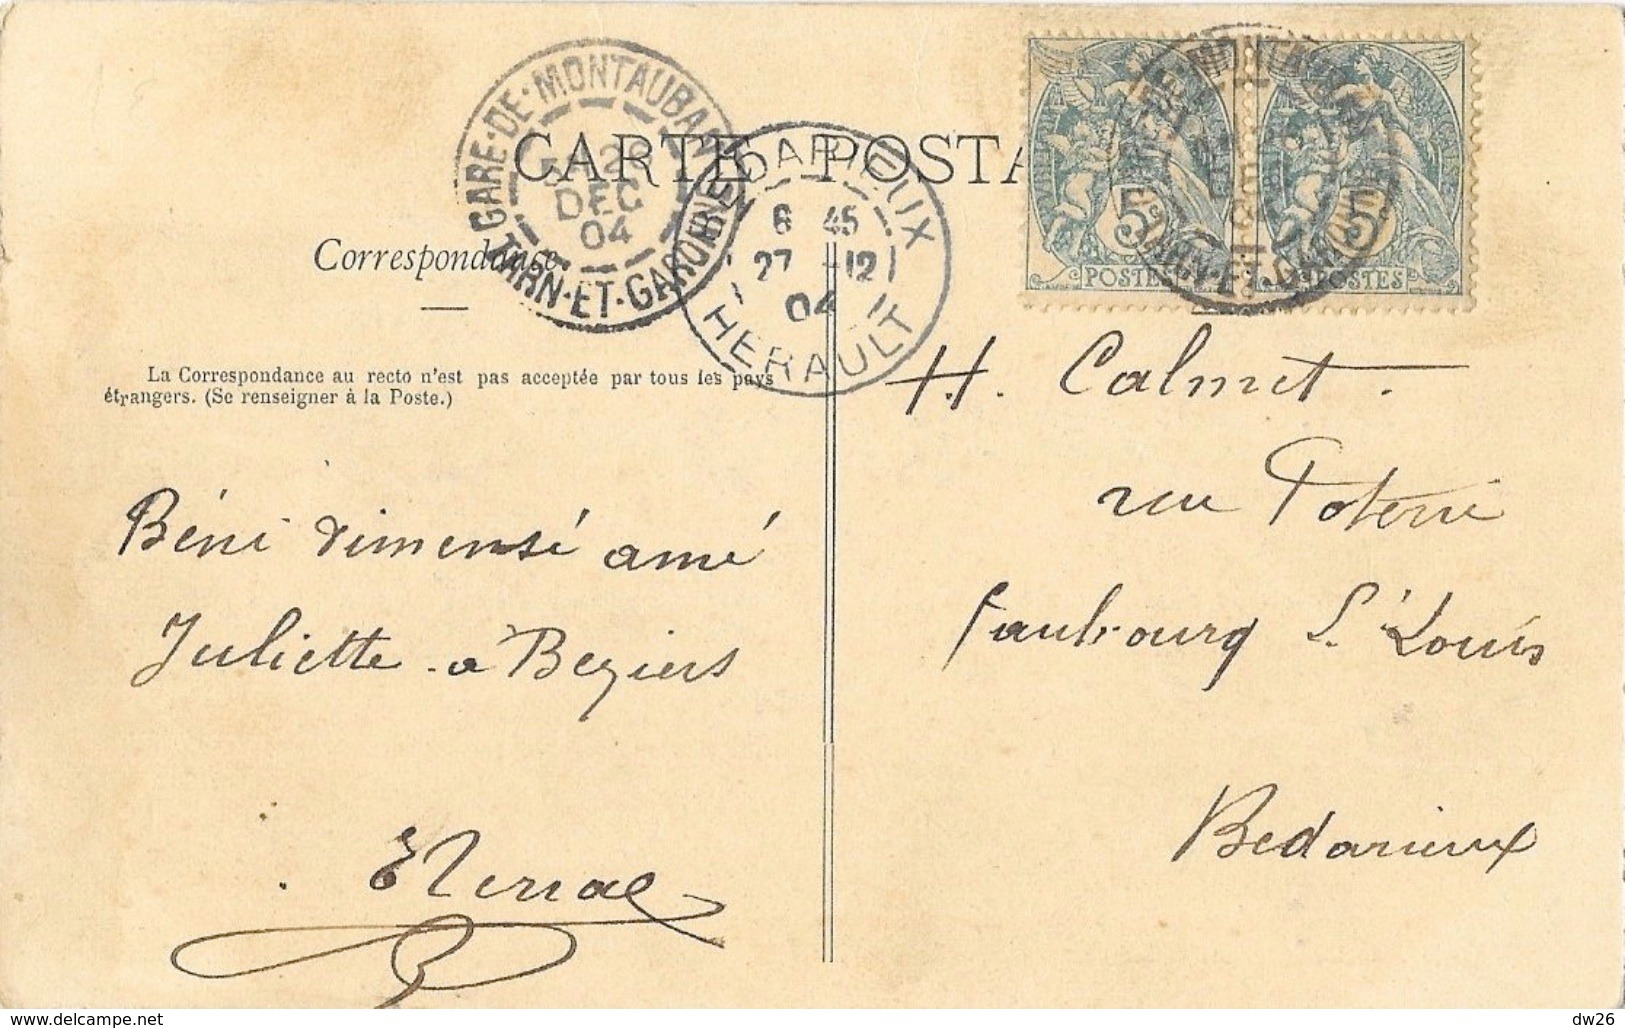 CARTE POSTA
GARE-DE-MONTAUBAN
26
DEC
04
TARN-ET-GARONNE
BEDARIEUX
6 45
27 -12
04
HERAULT
5
POSTES
5
POSTES
Correspondance
La Correspondance au recto n'est pas acceptée par tous les pays
étrangers. (Se renseigner à la Poste.)
Béni dimensé amé
Juliette à Beziers
H. Calmet.
rue
faubourg St Louis
Bedarieux
www.delcampe.net
dw26